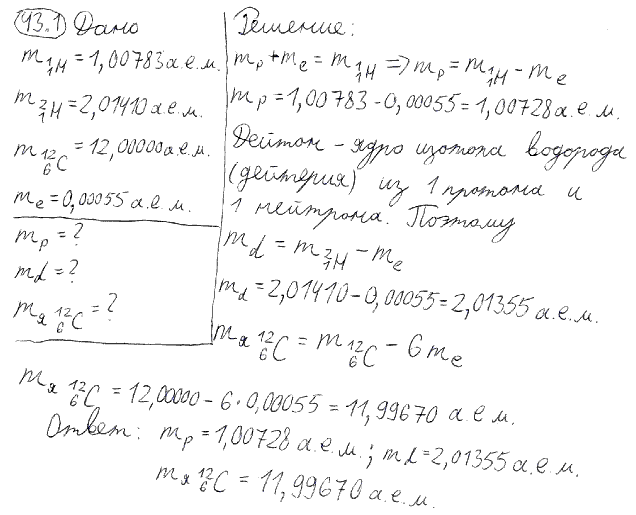 93.1 Дано
m ¹₁H = 1,00783 а.е.м.
m ²₁H = 2,01410 а.е.м.
m ¹²₆C = 12,00000 а.е.м.
mₑ = 0,00055 а.е.м.
mₚ = ?
md = ?
mя ¹²₆C = ?
Решение:
mₚ + mₑ = m ¹₁H => mₚ = m ¹₁H − mₑ
mₚ = 1,00783 − 0,00055 = 1,00728 а.е.м.
Дейтон – ядро изотопа водорода
(дейтерия) из 1 протона и
1 нейтрона. Поэтому
md = m ²₁H − mₑ
md = 2,01410 − 0,00055 = 2,01355 а.е.м.
mя ¹²₆C = m ¹²₆C − 6mₑ
mя ¹²₆C = 12,00000 − 6·0,00055 = 11,99670 а.е.м.
Ответ: mₚ = 1,00728 а.е.м.; md = 2,01355 а.е.м.
mя ¹²₆C = 11,99670 а.е.м.